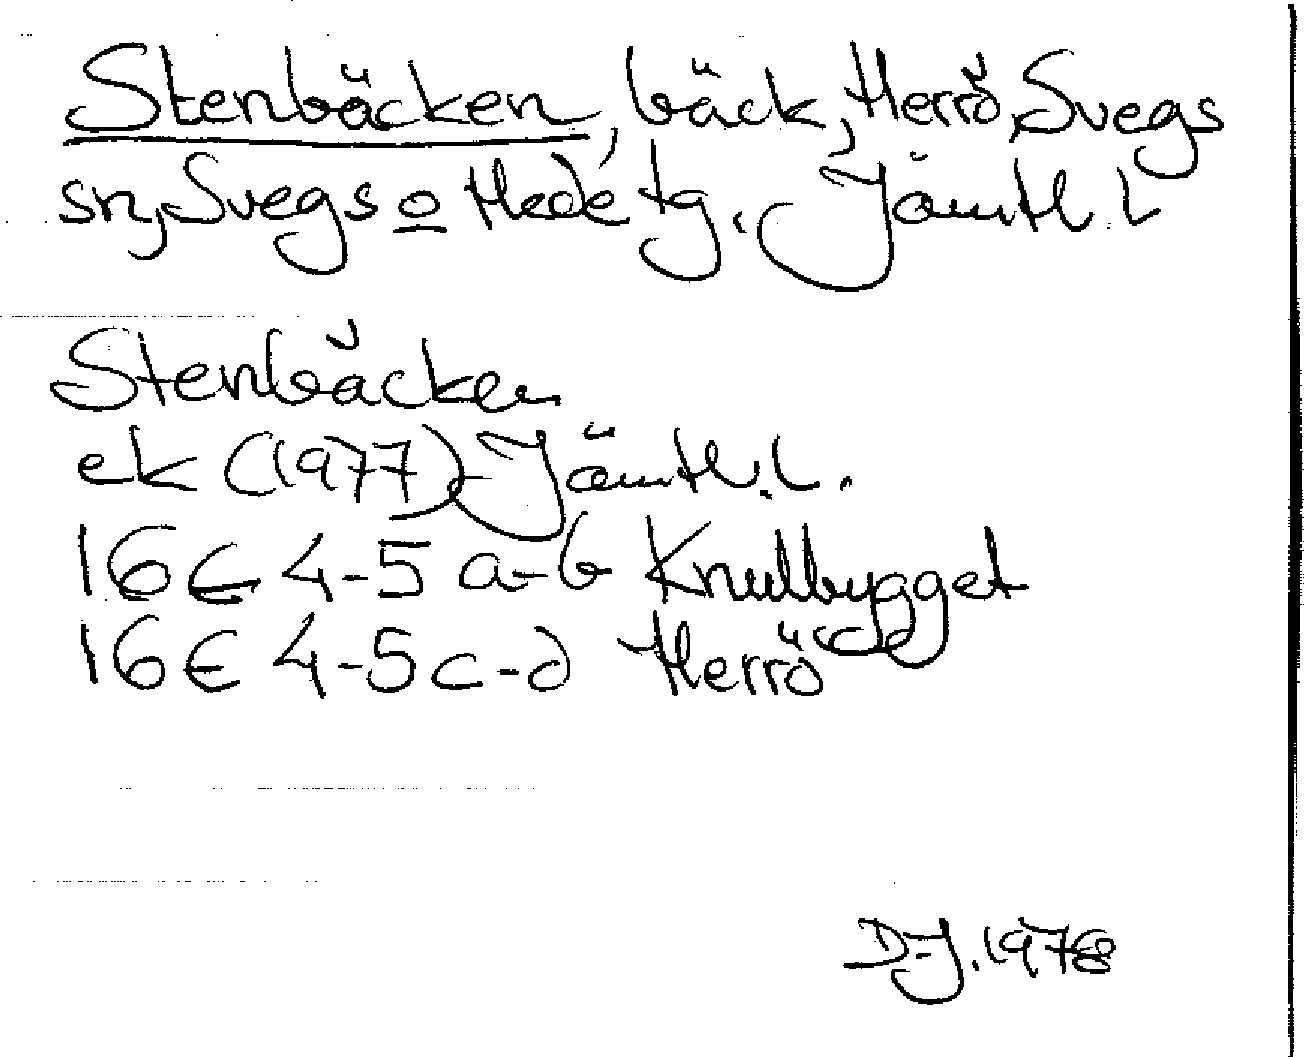 Stenbäcken, bäck, Herrö, Svegs
sn, Svegs o Hede tg. Jämtl. L
Stenbäcken
ek (1977) Jämtl. L.
16E 4-5 a-b Knullbygget
16E 4-5 c-d Herrö
D-J. 1978